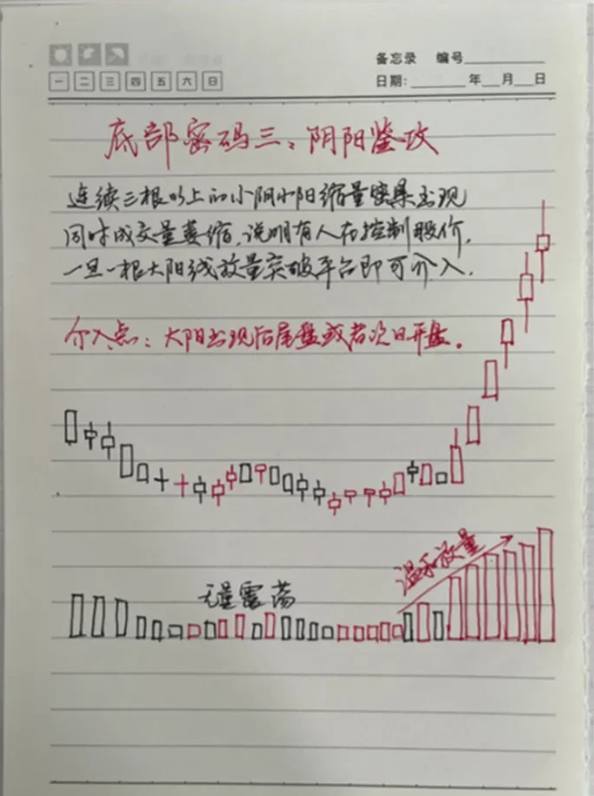 备忘录 编号
一 二 三 四 五 六 日
日期: 年 月 日
底部密码三：阴阳鉴攻
连续三根以上的小阴小阳缩量密集出现
同时成交量萎缩，说明有人在控制股价，
一旦一根大阳线放量突破平台即可介入．
介入点：大阳出现后尾盘或者次日开盘。
无量震荡
温和放量